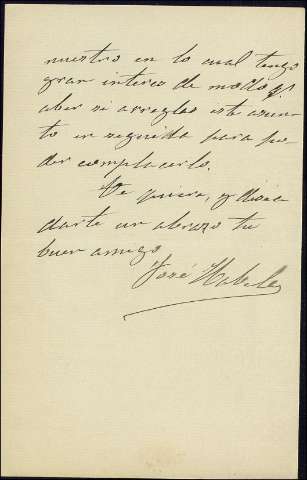 nuestro en lo cual tengo
gran interes de modo q.e
aber si arreglas este asun-
to en seguida para po-
der complacerlo.
Te quiere, y desea
darte un abrazo tu
buen amigo
José